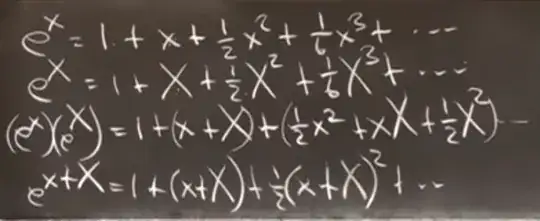 e^x = 1 + x + 1/2 x^2 + 1/6 x^3 + ---
e^X = 1 + X + 1/2 X^2 + 1/6 X^3 + ---
(e^x)(e^X) = 1 + (x + X) + (1/2 x^2 + xX + 1/2 X^2) ---
e^{x+X} = 1 + (x+X) + 1/2 (x+X)^2 + ---